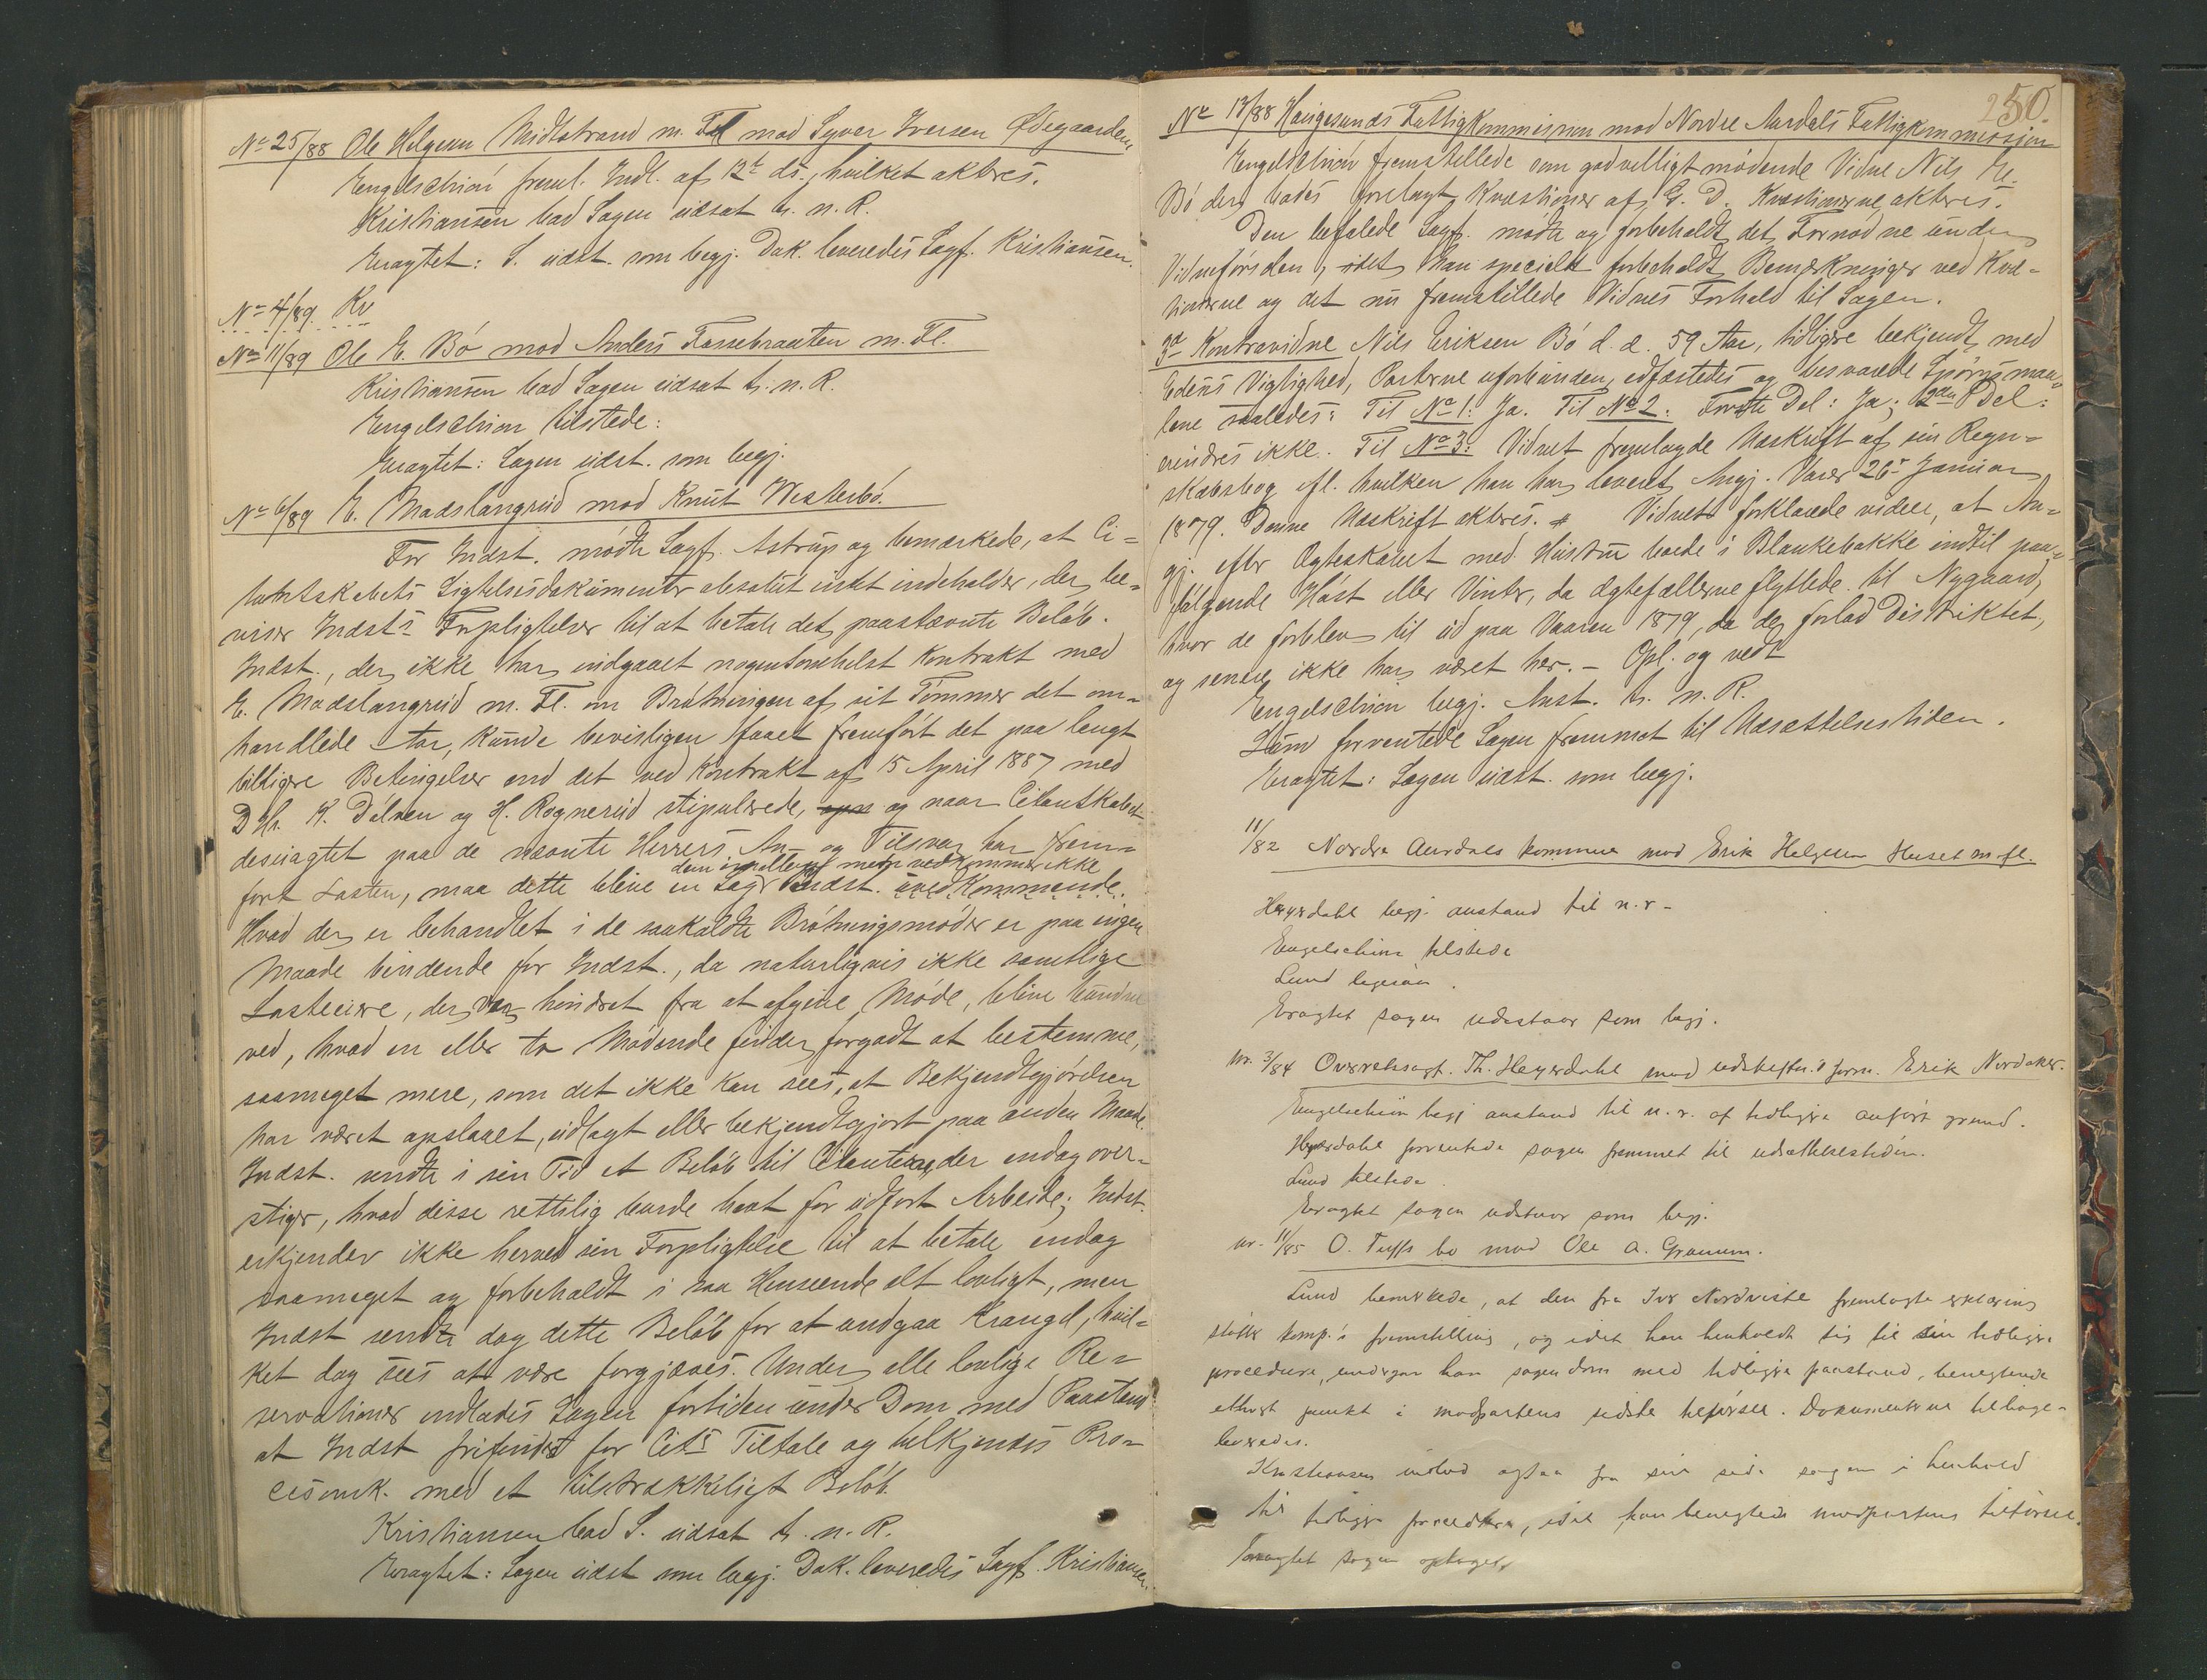 No 25/88 Ole Helgesen Midtstrand m. Fl mod Syver Iversen Ødegaarden
Engelschiøn freml. Indl. af 12t ds., hvilket akteres.
Kristiansen bad Sagen udsat t. n. R.
Eragtet: S. udst. som begj. Dok. leveredes Sagf. Kristiansen.
No 4/89 Kv
No 11/89 Ole E. Bø mod Anders Fossebraaten m. Fl.
Kristiansen bad Sagen udsat t. n. R.
Engelschiøn tilstede:
Eragtet: Sagen udst. som begj.
No 6/89 E. Madslangrud mod Knut Westerbø.
For Indst. mødte Sagf. Astrup og bemærkede, at Ci=
tantskabets Sigtelsesdokumenter absolut intet indeholder, der be=
viser Indsts Forpligtelser til at betale det paastævnte Beløb.
Indst., der ikke har indgaaet nogensomhelst Kontrakt med
E. Madslangrud m. Fl. om Brøtningen af sit Tømmer det om=
handlede Aar, kunde bevisligen faaet fremført det paa langt
billigere Betingelser end det ved Kontrakt af 15 April 1887 med
D Hr. K. Dølven og H. Rognerud stipulerede, og naar Citantskabet
desuagtet paa de nævnte Herrers An- og Tilsvar har frem=
dem imellem men vedkommer ikke
ført Lasten, maa dette blive en Sag Indst. uvedkommende.
Hvad der er behandlet i de saakaldte Brøtningsmøder er paa ingen
Maade bindende for Indst., da naturligvis ikke samtlige
Lasteeiere, der var hindret fra at afgive Møde, blive bundne
ved, hvad en eller to Mødende finder forgodt at bestemme,
saameget mere, som det ikke kan sees, at Bekjendtgjørelsen
har været opslaaet, udlagt eller bekjendtgjort paa anden Maade.
Indst. sendte i sin Tid et Beløb til Citanterne, der endog over=
stiger, hvad disse rettelig burde havt for udført Arbeide; Indst.
erkjender ikke herved sin Forpligtelse til at betale endog
saameget og forbeholdt i saa Henseende alt lovligt, men
Indst sendte dog dette Beløb for at undgaa Krangel, hvil=
ket dog sees at være forgjæves. Under alle lovlige Re=
servationer indlades Sagen fortiden under Dom med Paastand
at Indst frifindes for Cits Tiltale og tilkjendes Pro=
cesomk. med et tilstrækkeligt Beløb.
Kristiansen bad S. udsat t. n. R.
Eragtet: Sagen udst som begj. Dok. leveredes Sagf. Kristiansen.
250.
No 17/88 Haugesunds Fattigkommission mod Nordre Aurdals Fattigkommission
Engelschiøn fremstillede som godvilligt mødende Vidne Nils E.
Bø der bades forelagt Kvæstioner af G. D. Kvæstionerne akteres.
Den befalede Sagf. mødte og forbeholdt det Fornødne under
Vidneførslen, idet han specielt forbeholdt Bemærkninger ved Kvæ=
tionerne og det nu fremstillede Vidnes Forhold til Sagen.
3die Kontravidne Nils Eriksen Bø d. æ. 59 Aar, tidligere bekjendt med
Edens Vigtighed, Parterne uforbunden, edfæstedes og besvarede Spørgsmaa=
lene saaledes: Til No 1: Ja. Til No 2. Første Del: Ja; 2den Del:
mindres ikke. Til No 3: Vidnet fremlagde Udskrift af sin Regn=
skabsbog ifl. hvilken han har leveret Angj. Varer 26de Januar
1879. Denne Udskrift akteres. Vidnet forklarede videre, at An=
gj. efter Ægteskabet med Hustru boede i Blankebakke indtil paa=
følgende Høst eller Vinter, da Ægtefællerne flyttede til Nygaard,
hvor de forblev til ud paa Vaaren 1879, da de forlod Distriktet,
og senere ikke har været her. – Opl. og vedt
Engelschiøn begj. Anst. t. n. R.
Lund forventede Sagen fremmet til Udsættelsestiden.
Eragtet: Sagen udst. som begj.
11/82 Nordre Aurdals kommune mod Erik Helgesen Huset m. fl.
Heyerdahl begj. anstand til n. r –
Engelschiøn tilstede
Lund ligesaa.
Eragtet sagen udestaar som begj.
nr. 3/84 Overretssagf. Th. Heyerdahl mod udskiftn.s form. Erik Nordaker.
Engelschiøn begj anstand til n. r. af tidligere anført grund.
Heyerdahl forventede sagen fremmet til udsættelsestiden.
Lund tilstede.
Eragtet sagen udstaar som begj.
nr. 11/85 O. Tuffs bo mod Ole A. Granum.
Lund bemærkede, at den fra Iver Nordviste fremlagte erklæring
støtte komp.s fremstilling, og idet han henholdt sig til sin tidligere
procedure, undergav han sagen dom med tidligere paastand, benegtende
ethvert punkt i modpartens sidste tilførsel. Dokumenterne tilbage=
leveredes.
Kristiansen indlod ogsaa fra sin side sagen i henhold
til tidligere procedure, idet han benegtede modpartens tilførsel.
Eragtet sagen optages